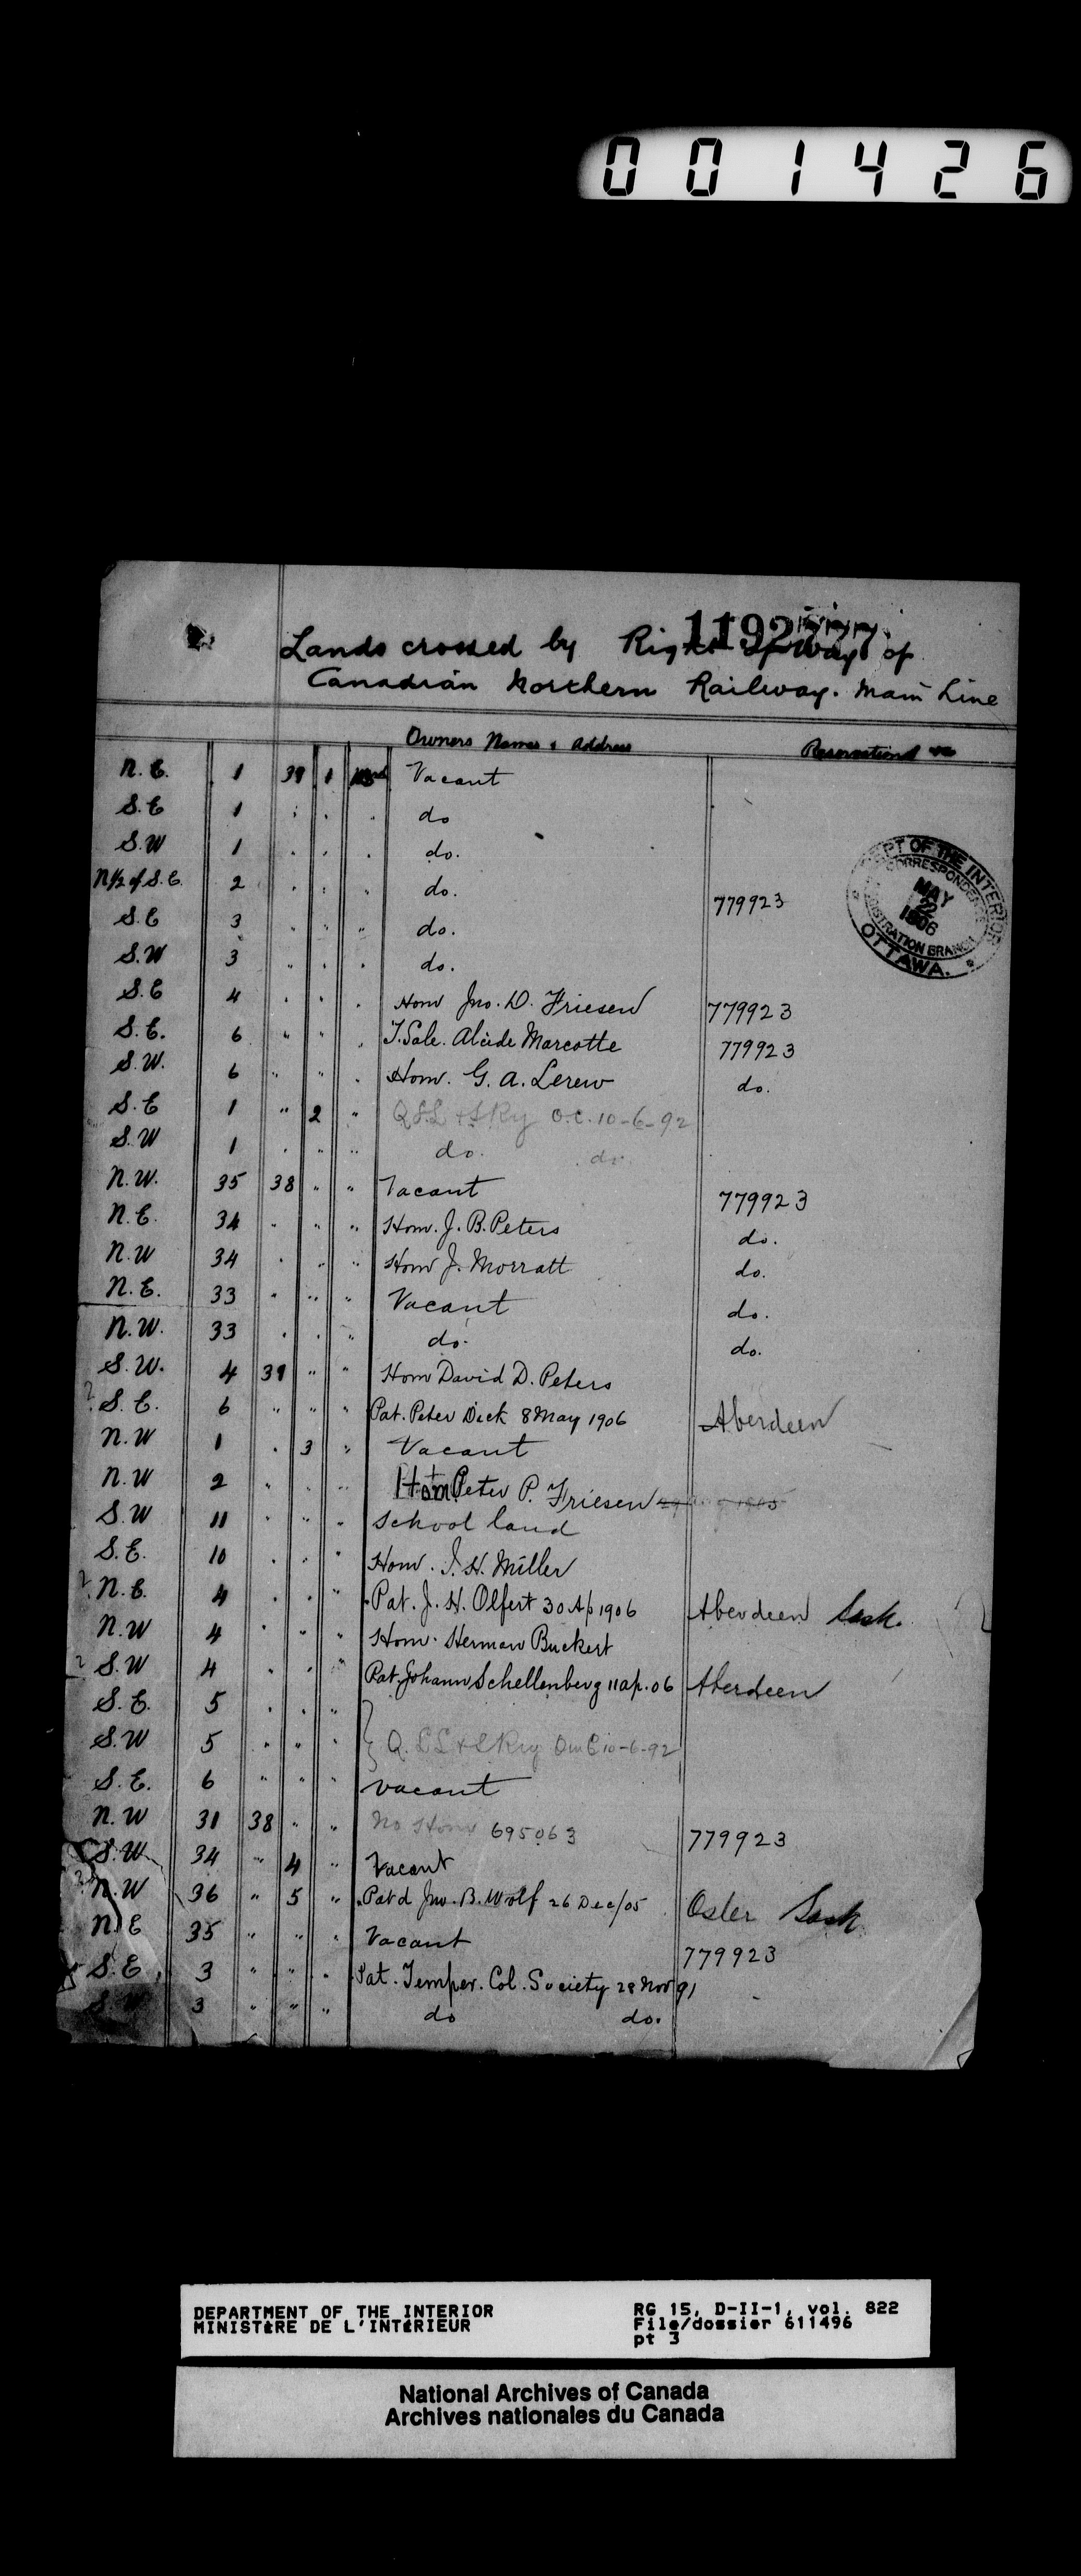 001426
1192777
Lands crossed by Right of Way of
Canadian Northern Railway. Main Line
Owners Names & Address Reservations &c
DEPT OF THE INTERIOR
CORRESPONDENCE
MAY
22
1906
REGISTRATION BRANCH
OTTAWA.
N.E. 1 39 1 Vacant
S.E 1 " " " do
S.W 1 " " " do.
N½ of S.E. 2 " " " do. 779923
S.E 3 " " " do.
S.W 3 " " " do.
S.E 4 " " " Hom Jno. D. Friesen 779923
S.E. 6 " " " T. Sale. Alcide Marcotte 779923
S.W. 6 " " " Hom. G. A. Lerew do.
S.E 1 " 2 " Q.L.L & S Ry O.C. 10-6-92
S.W 1 " " " do. do.
N.W. 35 38 " " Vacant 779923
N.E. 34 " " " Hom. J. B. Peters do.
N.W 34 " " " Hom J. Morratt do.
N.E. 33 " " " Vacant do.
N.W. 33 " " " do. do.
S.W. 4 39 " " Hom David D. Peters
? S.E. 6 " " " Pat. Peter Dick 8 May 1906 Aberdeen
N.W 1 " 3 " Vacant
N.W 2 " " " Hom Peter P. Friesen
S.W 11 " " " School land
S.E. 10 " " " Hom. J. H. Miller
? N.E. 4 " " " Pat. J. H. Olfert 30 Ap 1906 Aberdeen Sask.
N.W 4 " " " Hom. Herman Buckert
? S.W 4 " " " Pat. Johann Schellenberg 11 ap. 06 Aberdeen
S.E. 5 " " "
S.W 5 " " " Q. L L & S Ry OinC 10-6-92
S.E. 6 " " " vacant
N.W 31 38 " " No Hom 695063 779923
S.W 34 " 4 " Vacant
? N.W 36 " 5 " Patd Jno. B. Wolf 26 Dec/05 Osler Sask
N.E 35 " " " Vacant 779923
S.E. 3 " " " Pat. Temper. Col. Society 28 Nov 91
S.W 3 " " " do do.
DEPARTMENT OF THE INTERIOR
MINISTÈRE DE L'INTÉRIEUR
RG 15, D-II-1, vol. 822
File/dossier 611496
pt 3
National Archives of Canada
Archives nationales du Canada